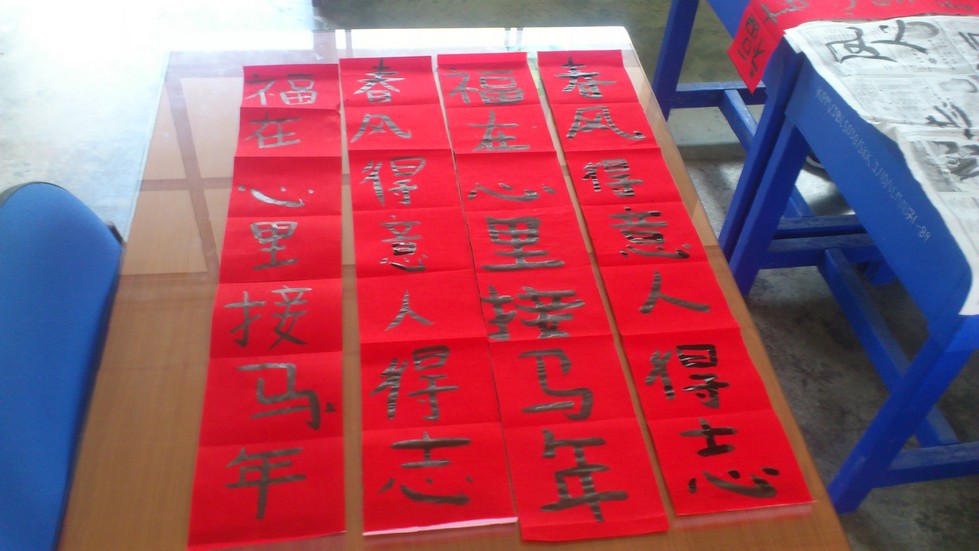 春风得意人得志
福在心里接马年
春风得意人得志
福在心里接马年
风